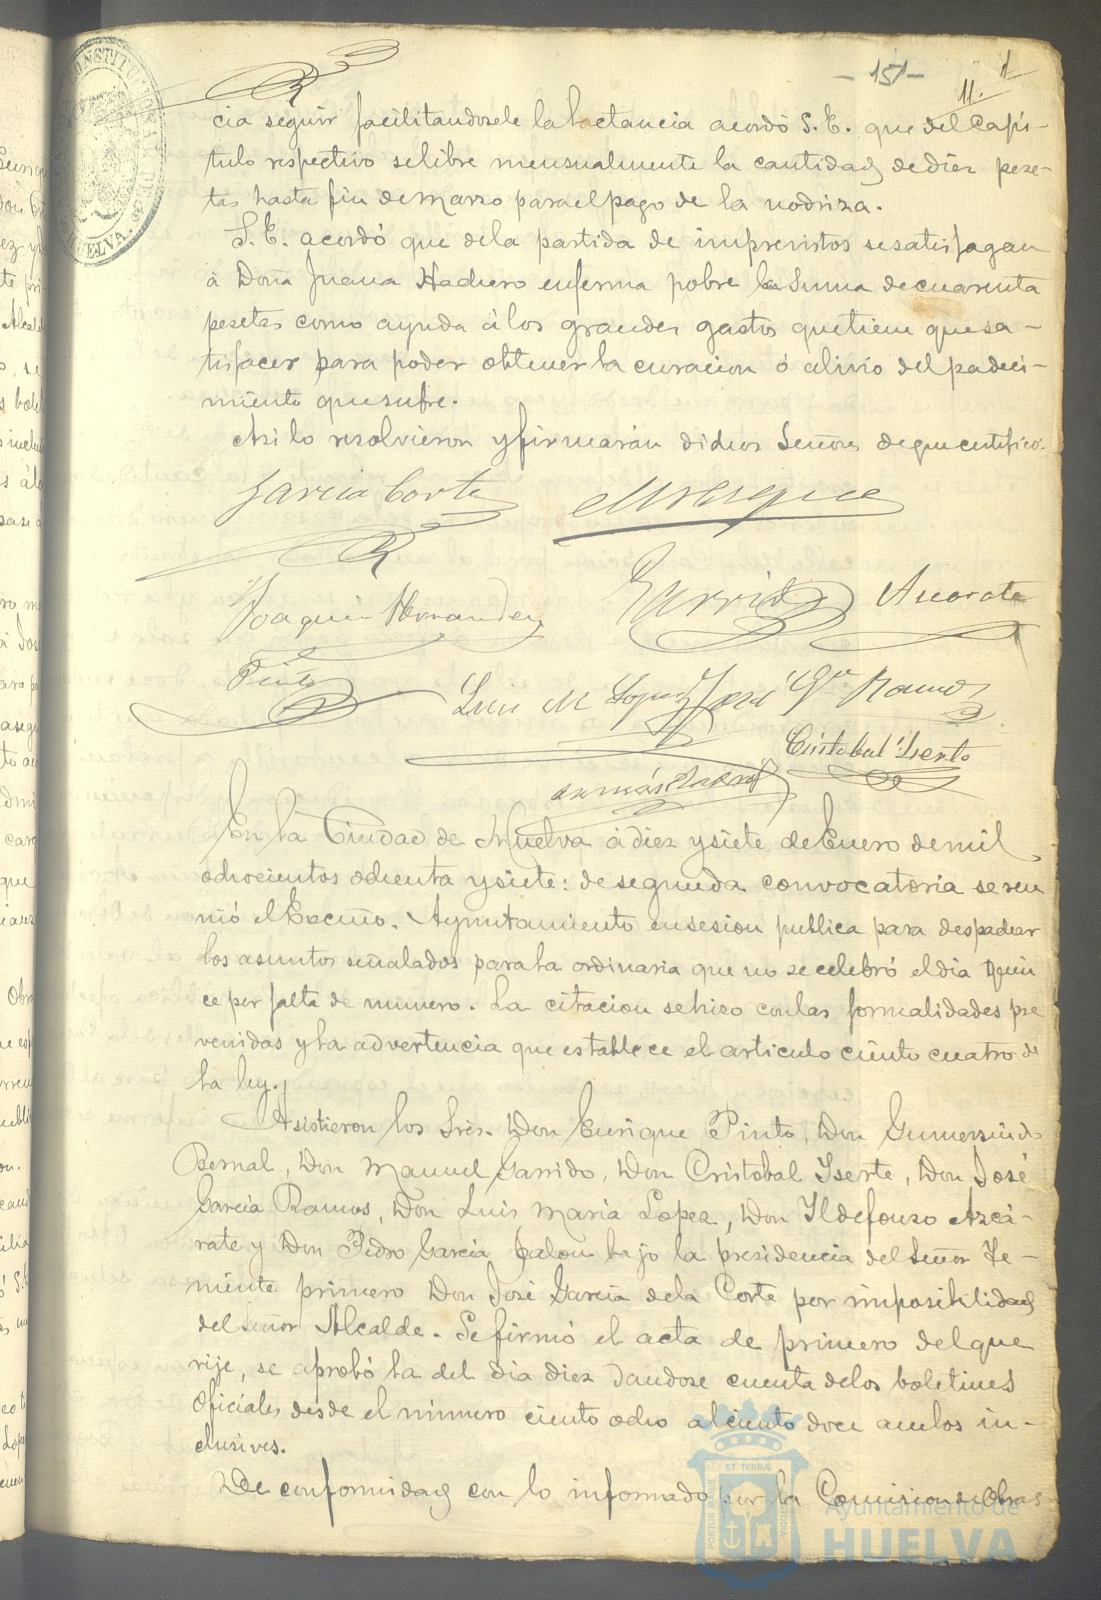 -151-
11.
cia seguir facilitandosele la lactancia acordó S. E. que del Capí-
tulo respectivo se libre mensualmente la cantidad de diez pese-
tas hasta fin de Marzo para el pago de la nodriza.
S. E. acordó que de la partida de imprevistos se satisfagan
á Doña Juana enferma pobre la suma de cuarenta
pesetas como ayuda á los grandes gastos que tiene que sa-
tisfacer para poder obtener la curacion ó alivio del padeci-
miento que sufre.
Asi lo resolvieron y firmarán dichos Señores de que certifico.
Garcia Corte
Joaquin Hernandez Garrido Azcarate
Pinto Luis M Lopez José Ga Ramos
Cristobal Iserte
En la Ciudad de Huelva á diez y siete de Enero de mil
ochocientos ochenta y siete: de segunda convocatoria se reu
nió el Excmo. Ayuntamiento en sesion publica para despachar
los asuntos señalados para la ordinaria que no se celebró el dia quin
ce por falta de numero. La citacion se hizo con las formalidades pre
venidas y la advertencia que establece el articulo ciento cuatro de
la ley.
Asistieron los Sres. Don Enrique Pinto, Don Gumersindo
Bernal, Don Manuel Garrido, Don Cristobal Iserte, Don José
Garcia Ramos, Don Luis Maria Lopez, Don Ildefonso Azcá-
rate y Don Pedro Garcia Jalon bajo la presidencia del Señor Te-
niente primero Don José Garcia de la Corte por imposibilidad
del Señor Alcalde. Se firmó el acta de primero del que
rije, se aprobó la del dia diez dandose cuenta de los boletines
Oficiales desde el número ciento ocho al ciento doce ambos in-
clusives.
De conformidad con lo informado por la Comision de Obras
Ayuntamiento de
HUELVA